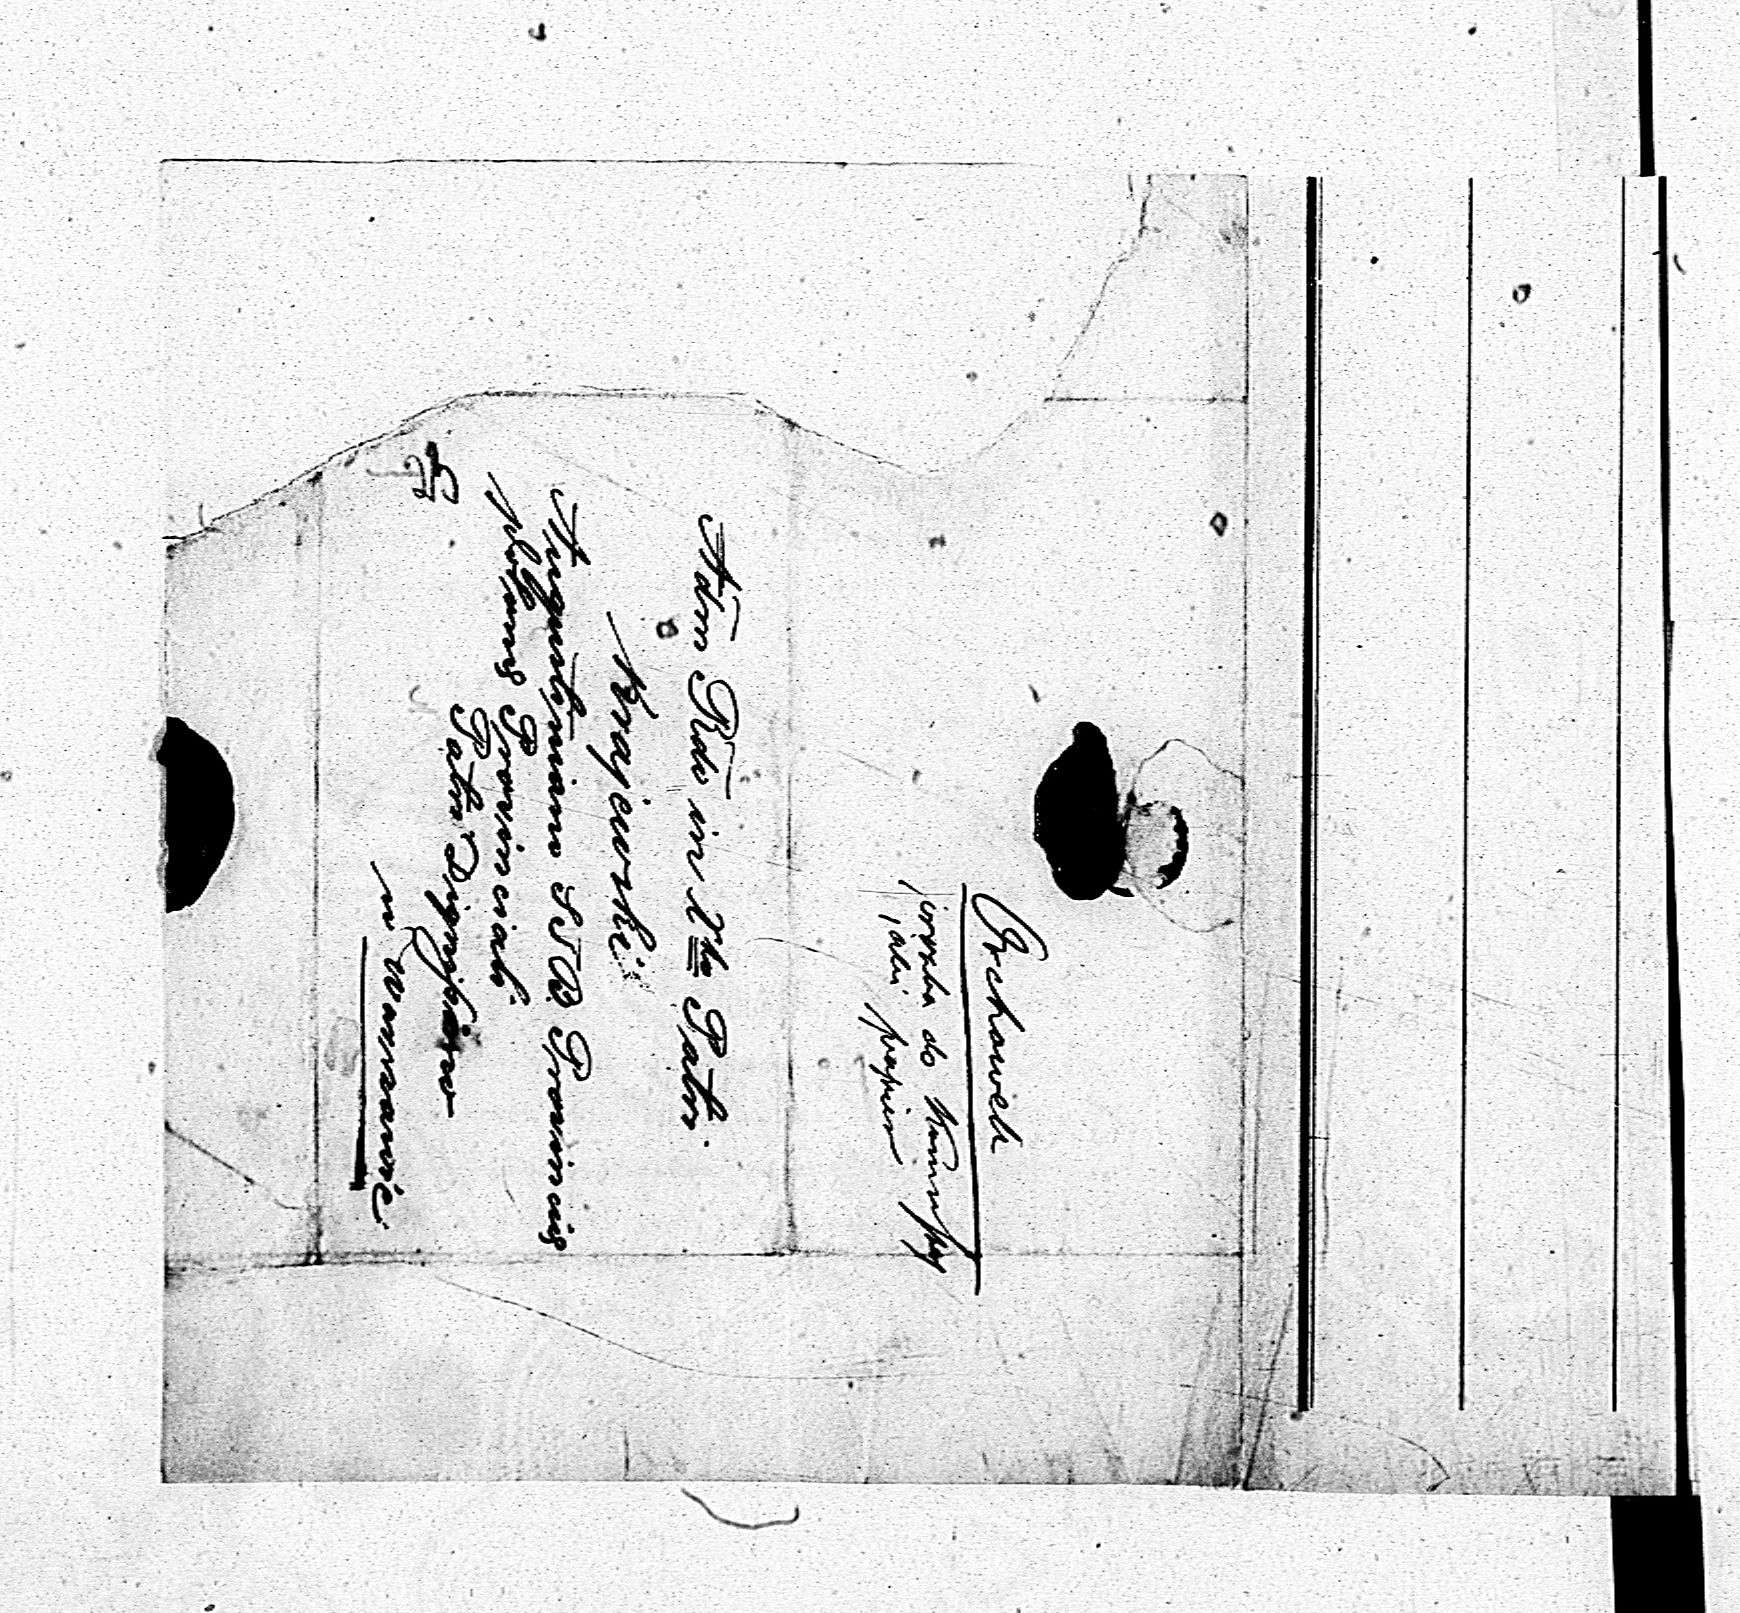 Orchowek
jeszcze do
jaki papier
Adm Rdo in Xto Patri
Krajewski
Augustiniano SS. Provinciæ
Poloniæ Provinciali
Patri Dignissimo
w Warszawie